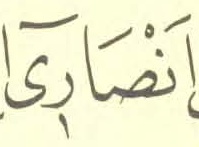 اَنْصَارِىٓ اِ